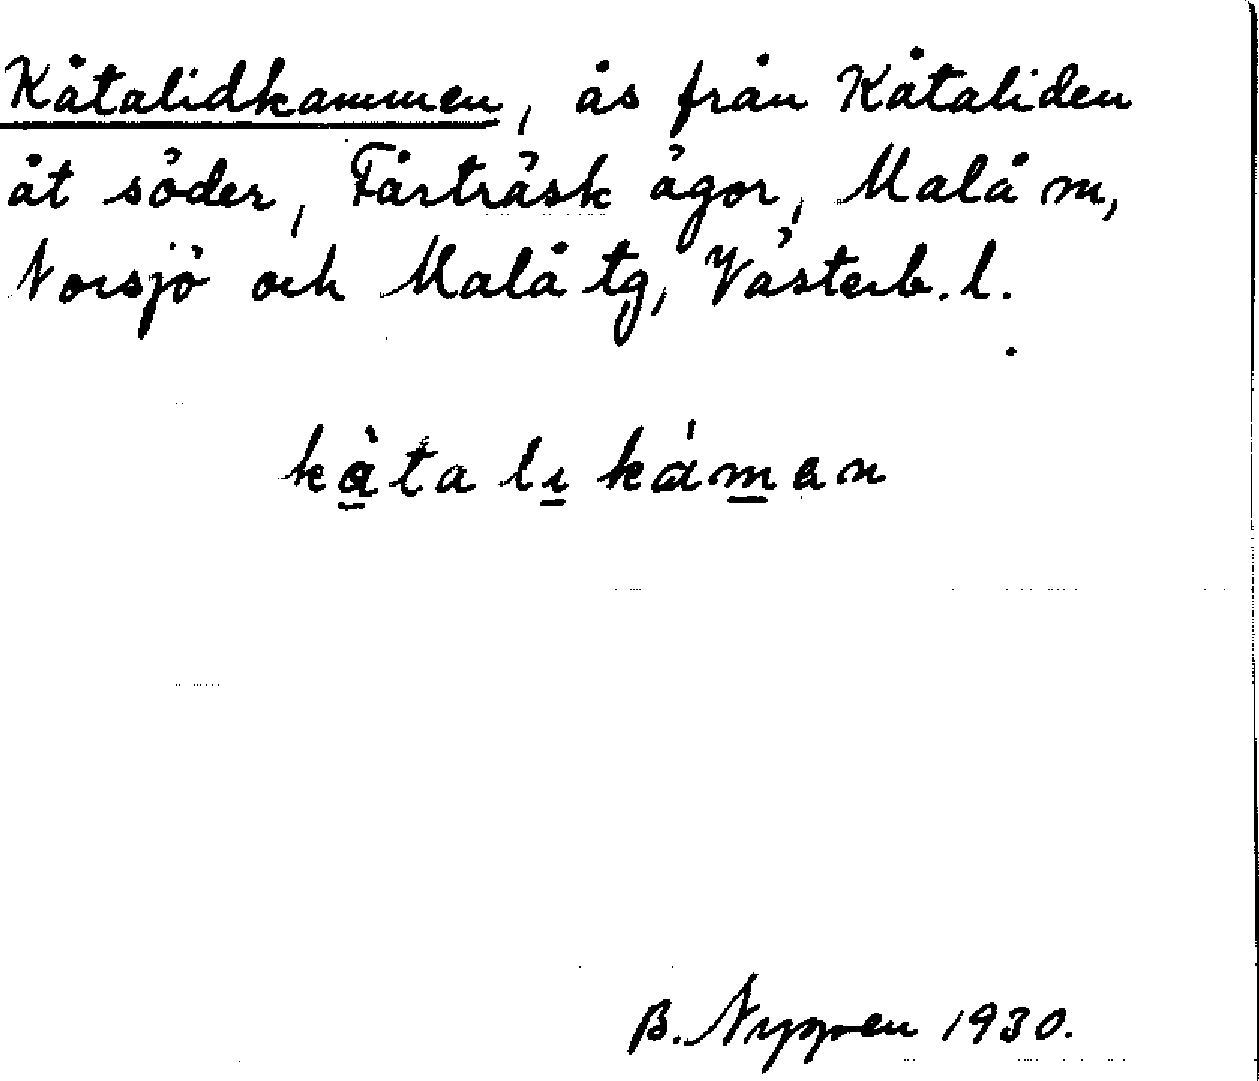 Kåtalidkammen, ås från Kåtaliden
åt söder, Fårträsk ägor, Malå m,
Norsjö och Malå tg, Västerb. l.
kàta lı káman
B. Nygren 1930.